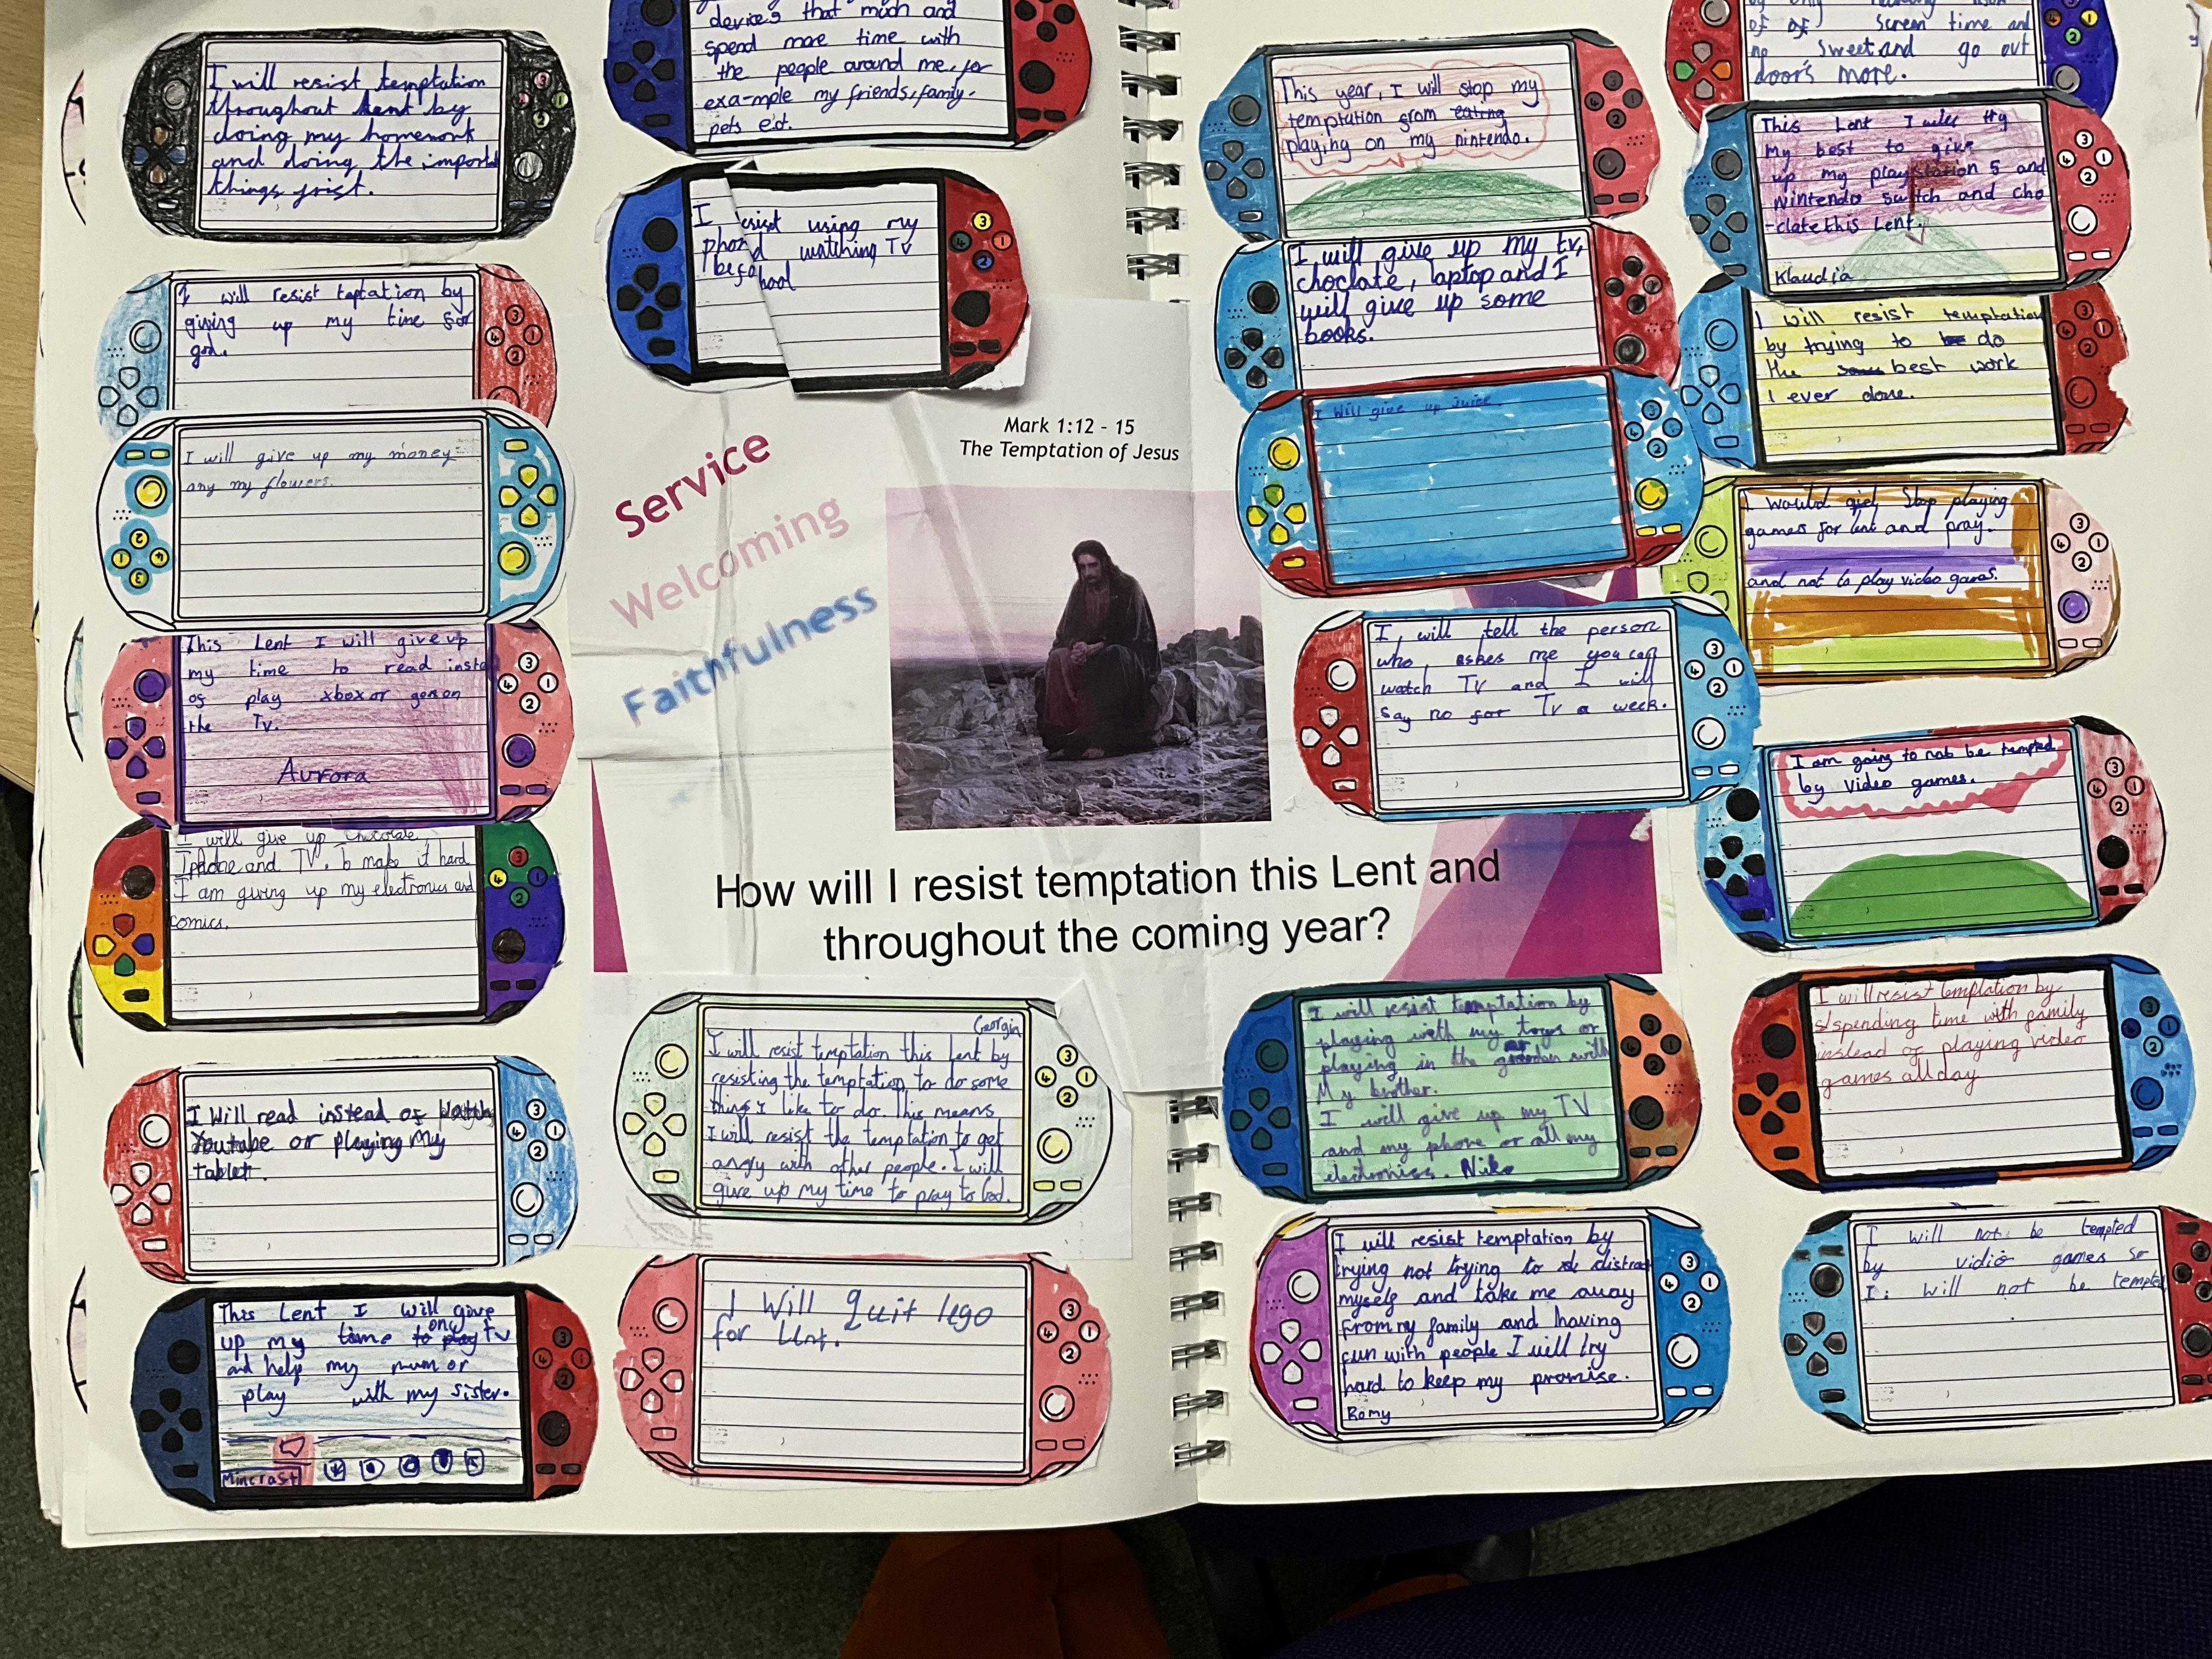 I will resist temptation
throughout Lent by
doing my homework
and doing the importat
things first.
I will resist taptation by
giving up my time for
god.
I will give up my money
any my flowers.
This Lent I will give up
my time to read inste
of play xbox or goe on
the Tv.
Aurora
I will give up chocolate,
Iphone and TV. To make it hard
I am giving up my electronics and
comics.
I Will read instead of Watching
Youtube or playing My
tablet.
This Lent I will give
up my time on Tv
and help my mum or
play with my sister.
Mincraft
devices that much and
spend more time with
the people around me. for
exa-mple my friends, family,
pets ect.
I resist using my
phon d watching TV
befo hool
Mark 1:12 - 15
The Temptation of Jesus
Service
Welcoming
Faithfulness
How will I resist temptation this Lent and
throughout the coming year?
Georgia
I will resist temptation this Lent by
resisting the temptation to do some
things I like to do. This means
I will resist the temptation to get
angry with other people. I will
give up my time to pray to God.
I Will Quit lego
for Lent.
This year, I will stop my
temptation from eating
playing on my nintendo.
I will give up my tv,
choclate, laptop and I
will give up some
books.
I Will give up Juice.
I, will tell the person
who, askes me you can
watch TV and I will
say no for Tv a week.
I will resist temptation by
playing with my toys or
playing in the garden with
My brother.
I will give up my TV
and my phone or all my
electronics. Niko
I will resist temptation by
trying not trying to distrac
myself and take me away
from my family and having
fun with people I will try
hard to keep my promise.
Romy
of of screen time and
no sweet and go out
door's more.
This Lent I will try
My best to give
up my playstation 5 and
Nintendo switch and cho
-clate this Lent.
Klaudia
I will resist temptation
by trying to do
the best work
I ever done.
I would Stop playing
games for lent and pray.
and not to play video games.
I am going to not be tempted
by video games.
I will resist temptation by
spending time with family
instead of playing video
games all day
I will not be tempted
by vidio games so
I. will not be tempted